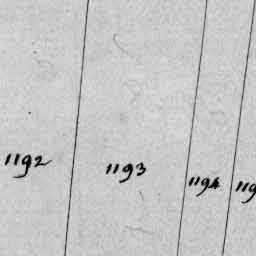 1192 1193 1194